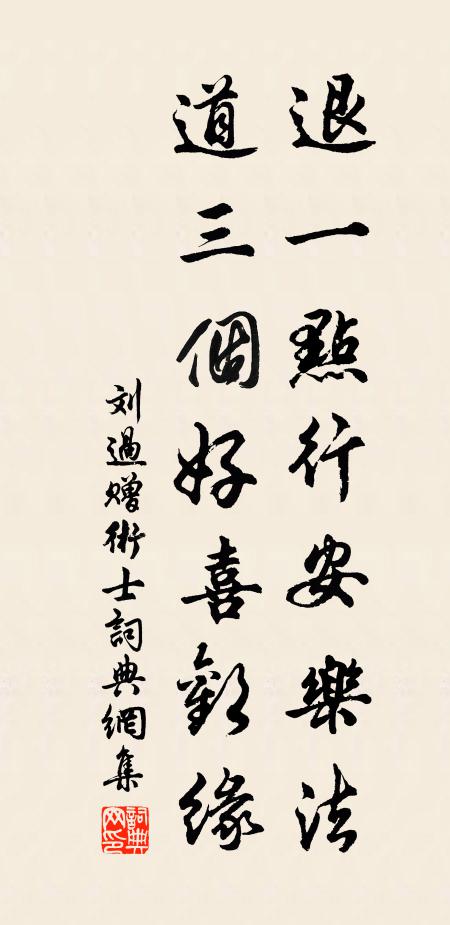 退一點行安樂法
道三個好喜歡緣
刘過贈術士詞典網集
詞典